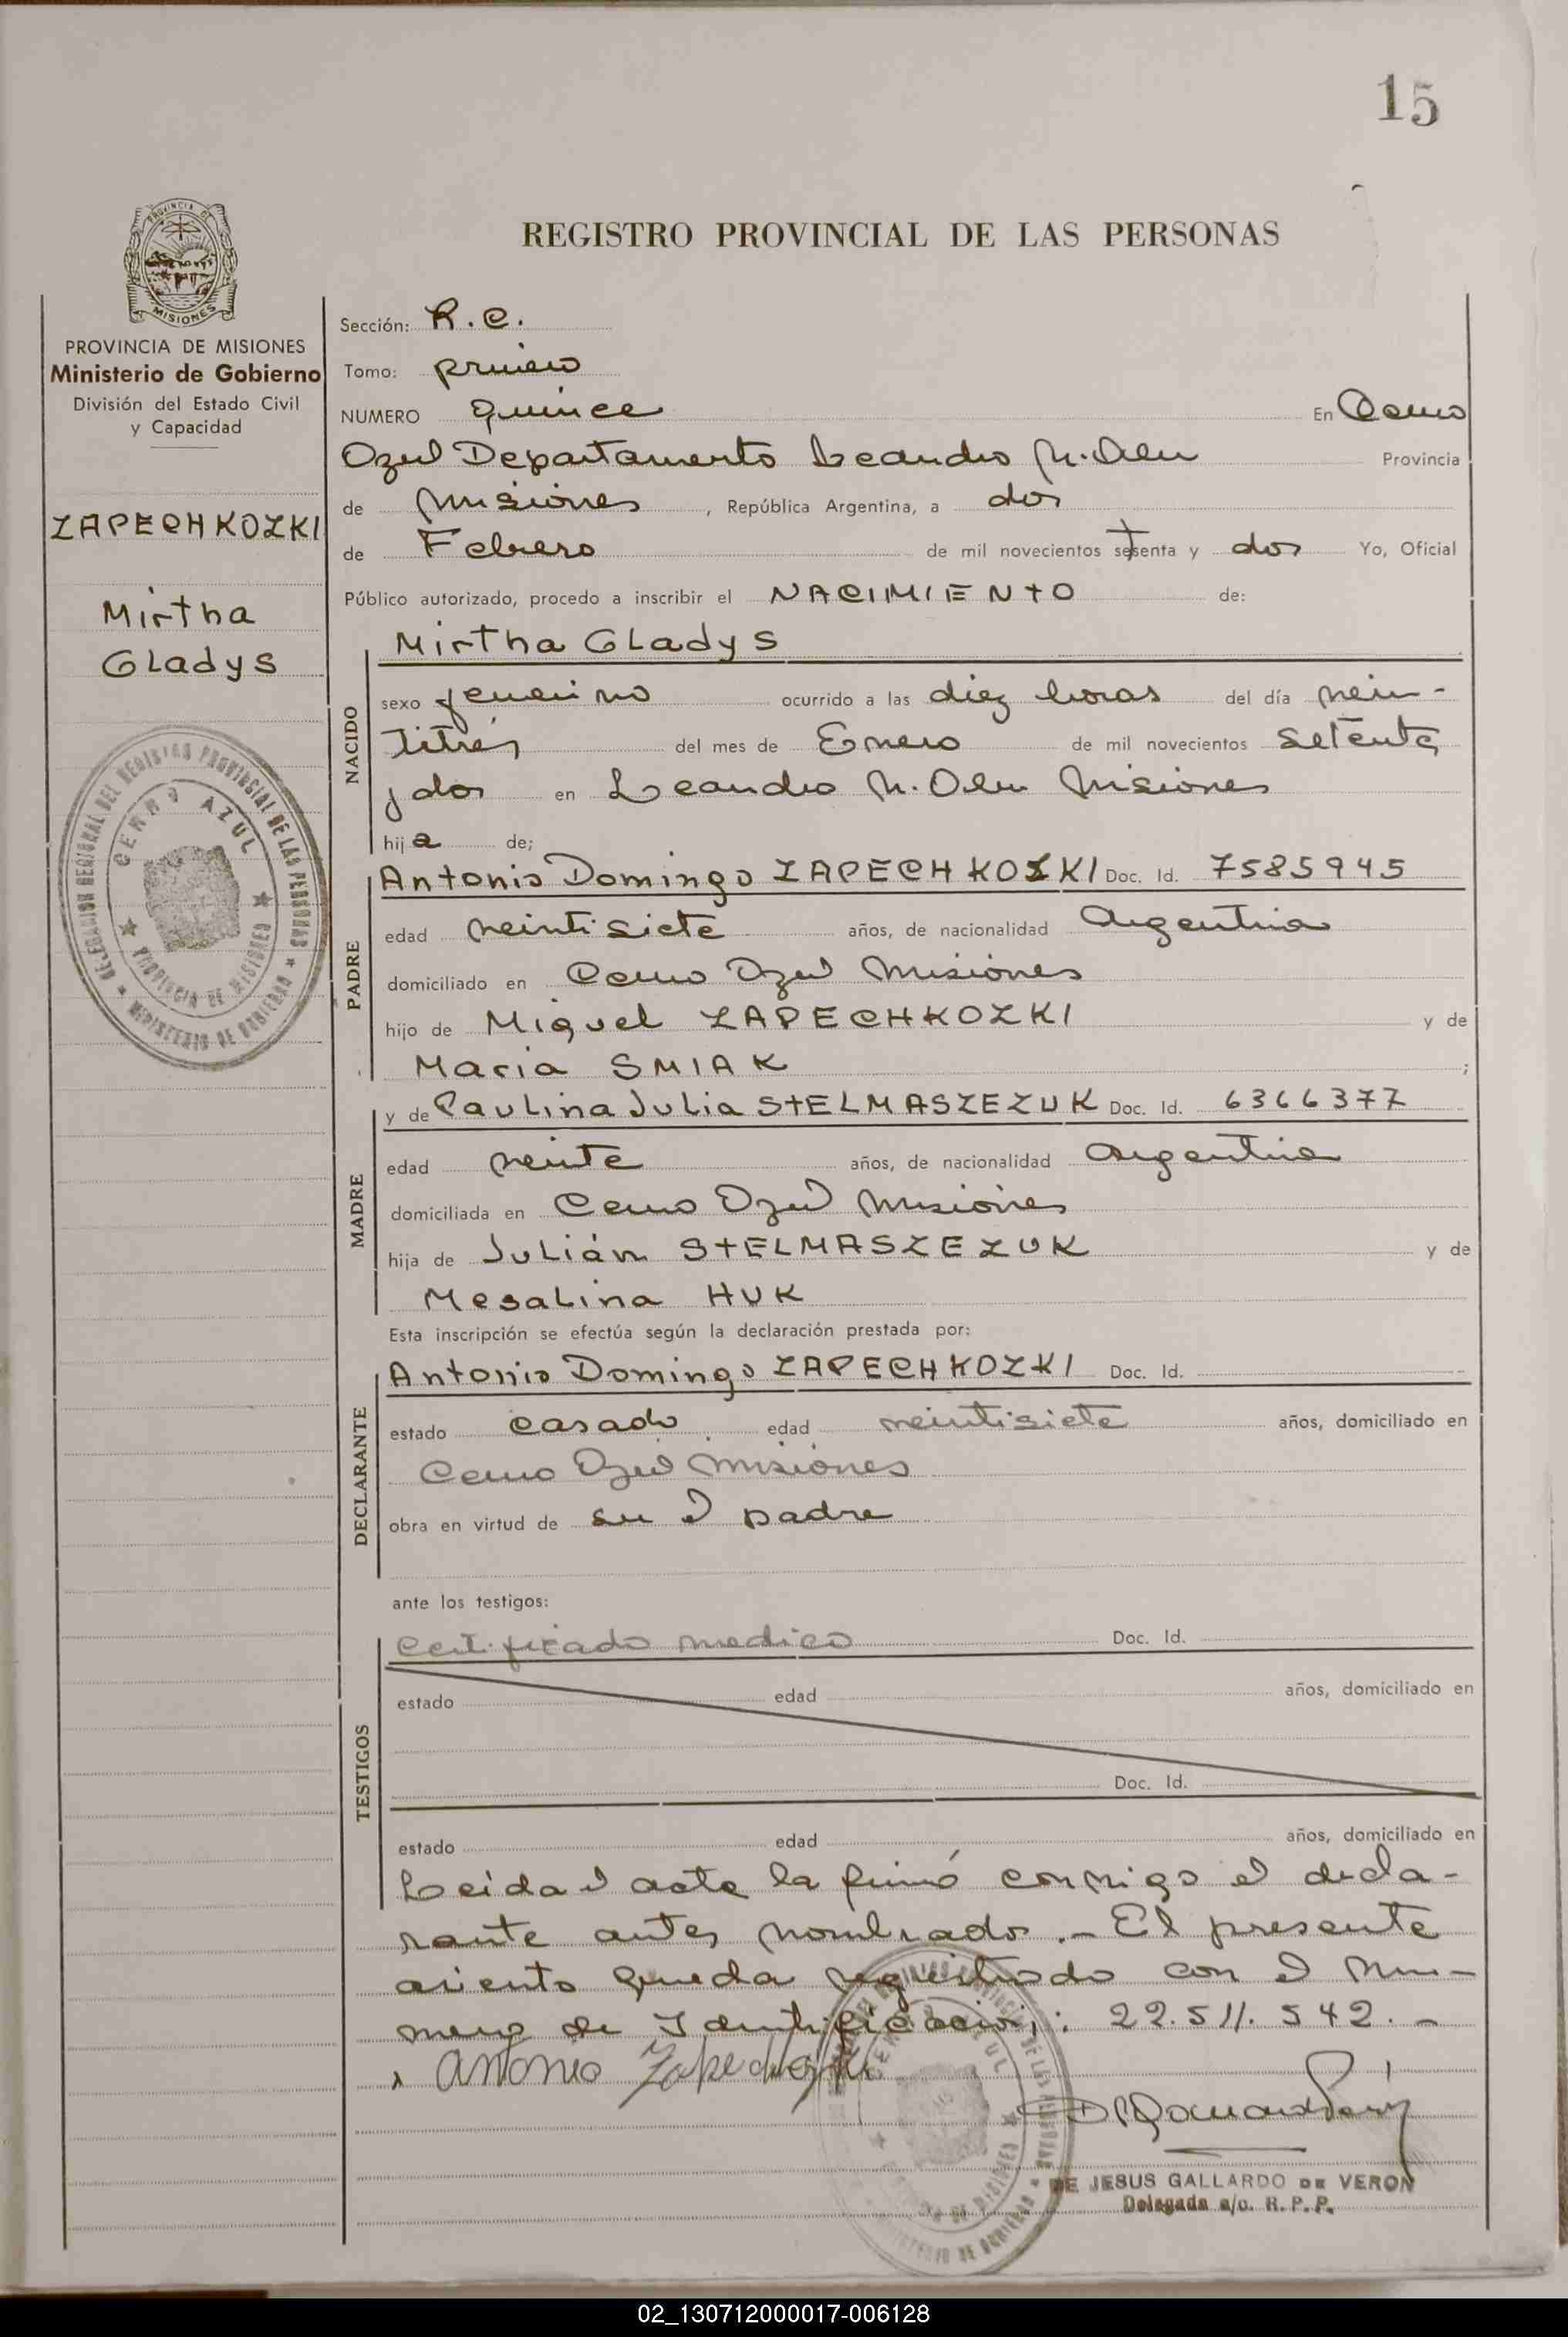 15
REGISTRO PROVINCIAL DE LAS PERSONAS
PROVINCIA DE MISIONES
PROVINCIA DE MISIONES
Ministerio de Gobierno
División del Estado Civil
y Capacidad
ZAPECHKOZKI
Mirtha
Gladys
DELEGACION REGIONAL DEL REGISTRO PROVINCIAL DE LAS PERSONAS ★ MINISTERIO DE GOBIERNO ★
CERRO AZUL ★ PROVINCIA DE MISIONES ★
Sección: R.C.
Tomo: primero
NUMERO quince En Cerro
Azul Departamento Leandro N. Alem Provincia
de Misiones, República Argentina, a dos
de Febrero de mil novecientos setenta y dos Yo, Oficial
Público autorizado, procedo a inscribir el NACIMIENTO de:
NACIDO
Mirtha Gladys
sexo femenino ocurrido a las diez horas del día vein-
titrés del mes de Enero de mil novecientos setenta
y dos en Leandro N. Alem Misiones
hija de;
PADRE
Antonio Domingo ZAPECHKOZKI Doc. Id. 7585945
edad veintisiete años, de nacionalidad Argentina
domiciliado en Cerro Azul Misiones
hijo de Miguel ZAPECHKOZKI y de
Maria SMIAK ;
MADRE
y de Paulina Julia STELMASZEZUK Doc. Id. 6366377
edad veinte años, de nacionalidad Argentina
domiciliada en Cerro Azul Misiones
hija de Julián STELMASZEZUK y de
Mesalina HUK
Esta inscripción se efectúa según la declaración prestada por:
DECLARANTE
Antonio Domingo ZAPECHKOZKI Doc. Id.
estado casado edad veintisiete años, domiciliado en
Cerro Azul Misiones
obra en virtud de ser el padre
ante los testigos:
TESTIGOS
Certificado medico Doc. Id.
estado edad años, domiciliado en
Doc. Id.
estado edad años, domiciliado en
Leida el acta la firmó conmigo el decla-
rante antes nombrado.- El presente
asiento queda registrado con el Nu-
mero de Identificación: 22.511.542.-
Antonio Zapechkozki
DE JESUS GALLARDO DE VERON
Delegada a/c. R.P.P.
02_130712000017-006128